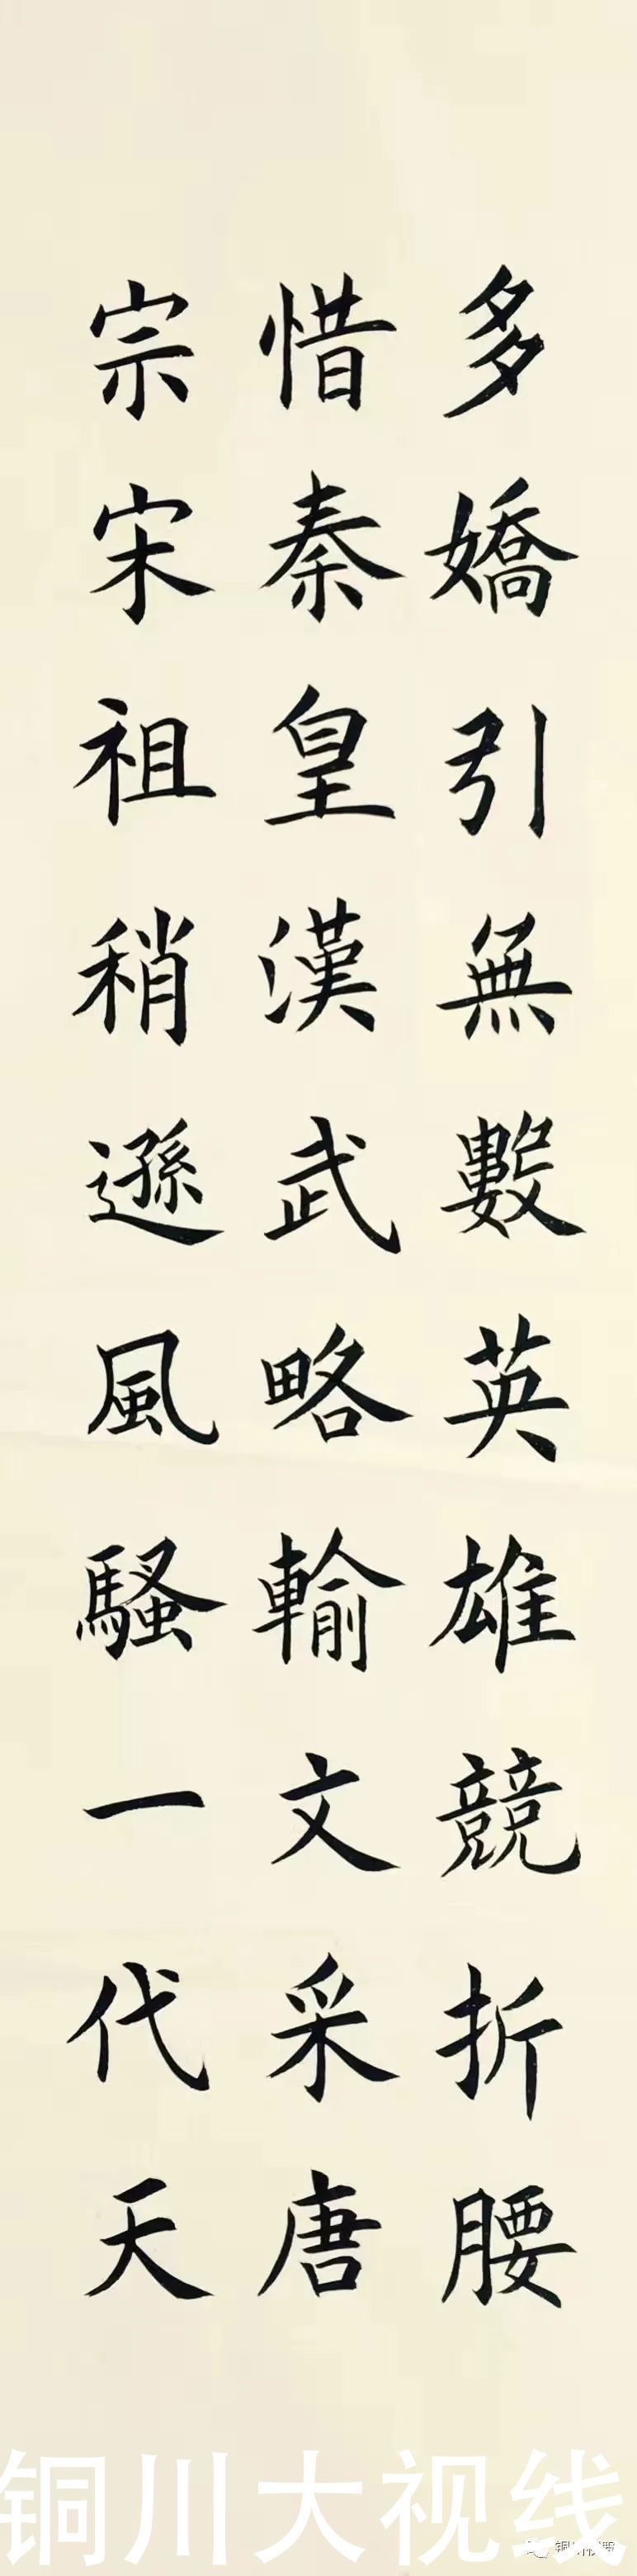 多嬌引無數英雄競折腰
惜秦皇漢武略輸文采唐
宗宋祖稍遜風騷一代天
铜川大视线